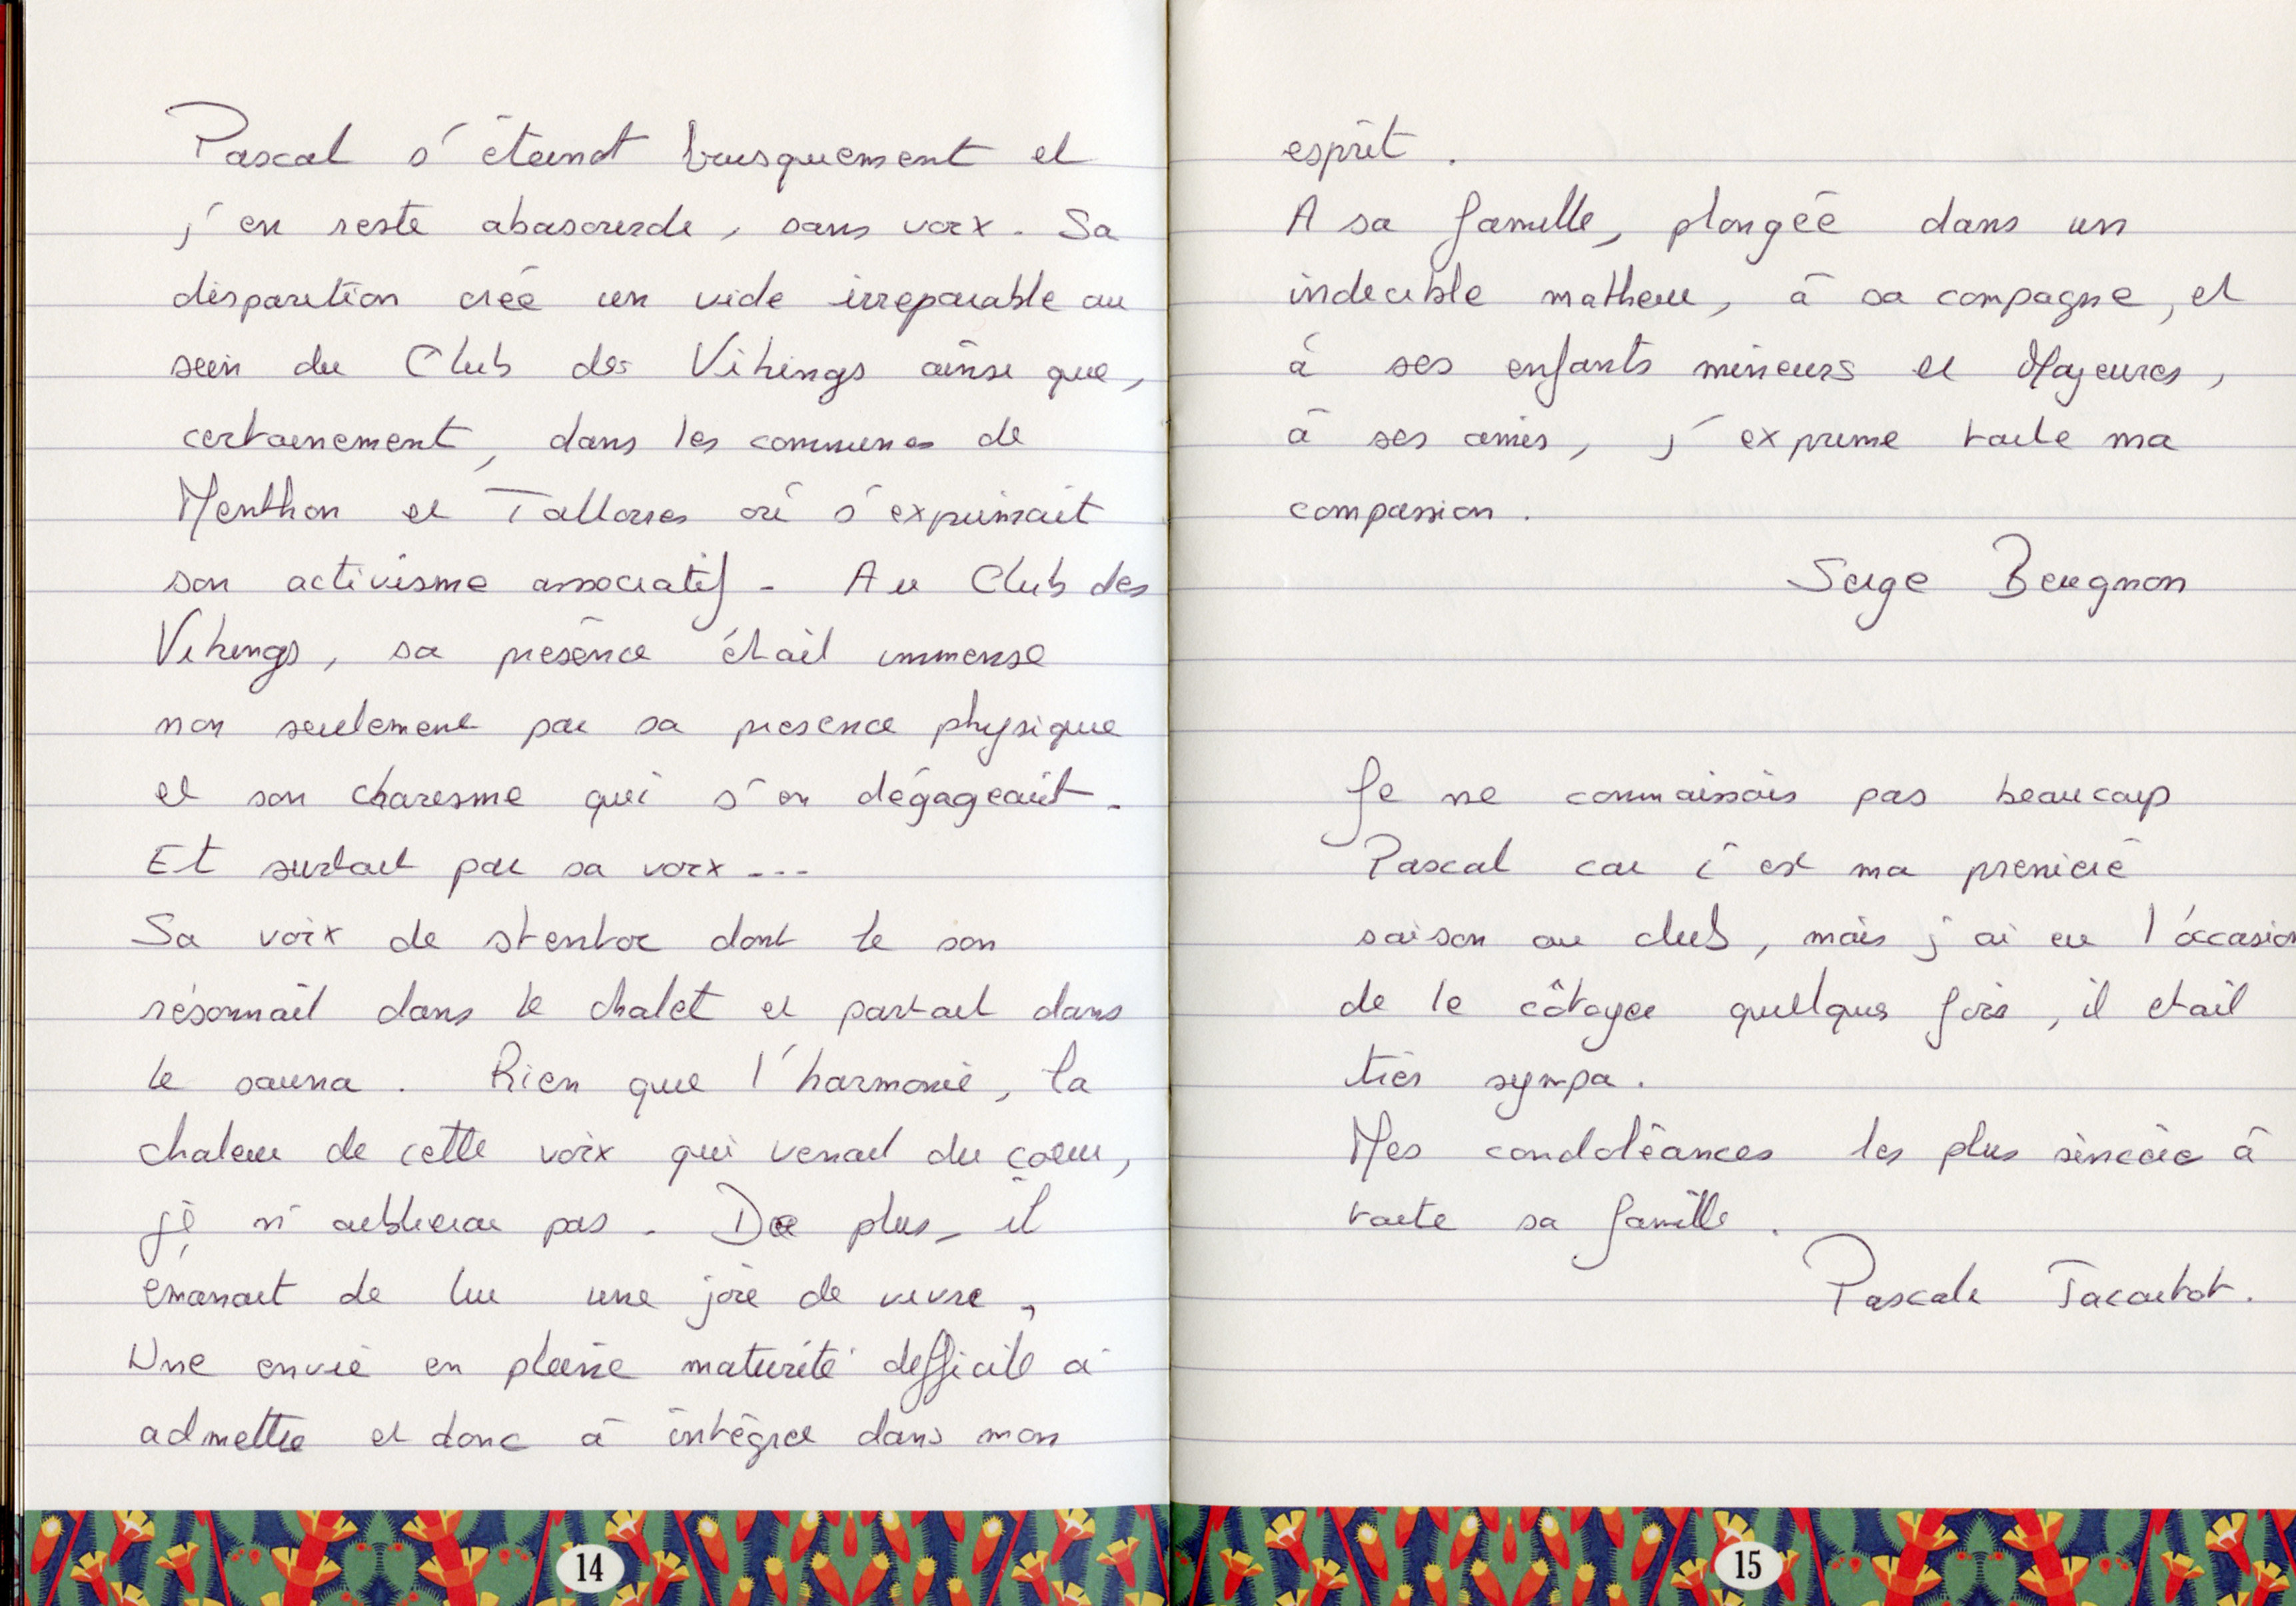 Pascal s'éteint brusquement et
j'en reste abasourdi, sans voix. Sa
disparition créé un vide irreparable au
sein du Club des Vikings ainsi que,
certainement, dans les communes de
Menthon et Talloires où s'exprimait
son activisme associatif. Au Club des
Vikings, sa présence était immense
non seulement par sa presence physique
et son charisme qui s'en dégageait.
Et surtout par sa voix ...
Sa voix de stentor dont le son
résonnait dans le chalet et partout dans
le sauna. Rien que l'harmonie, la
chaleur de cette voix qui venait du coeur,
je n'oublierai pas. De plus, il
émanait de lui une joie de vivre,
Une envie en pleine maturité difficile à
admettre et donc à intégrer dans mon
14
esprit.
A sa famille, plongée dans un
indecible malheur, à sa compagne, et
à ses enfants mineurs et Majeures,
à ses amis, j'exprime toute ma
compassion.
Serge Beugnon
Je ne connaissais pas beaucoup
Pascal car c'est ma première
saison au club, mais j'ai eu l'occasion
de le côtoyer quelques fois, il etait
très sympa.
Mes condoléances les plus sincères à
toute sa famille.
Pascale
15